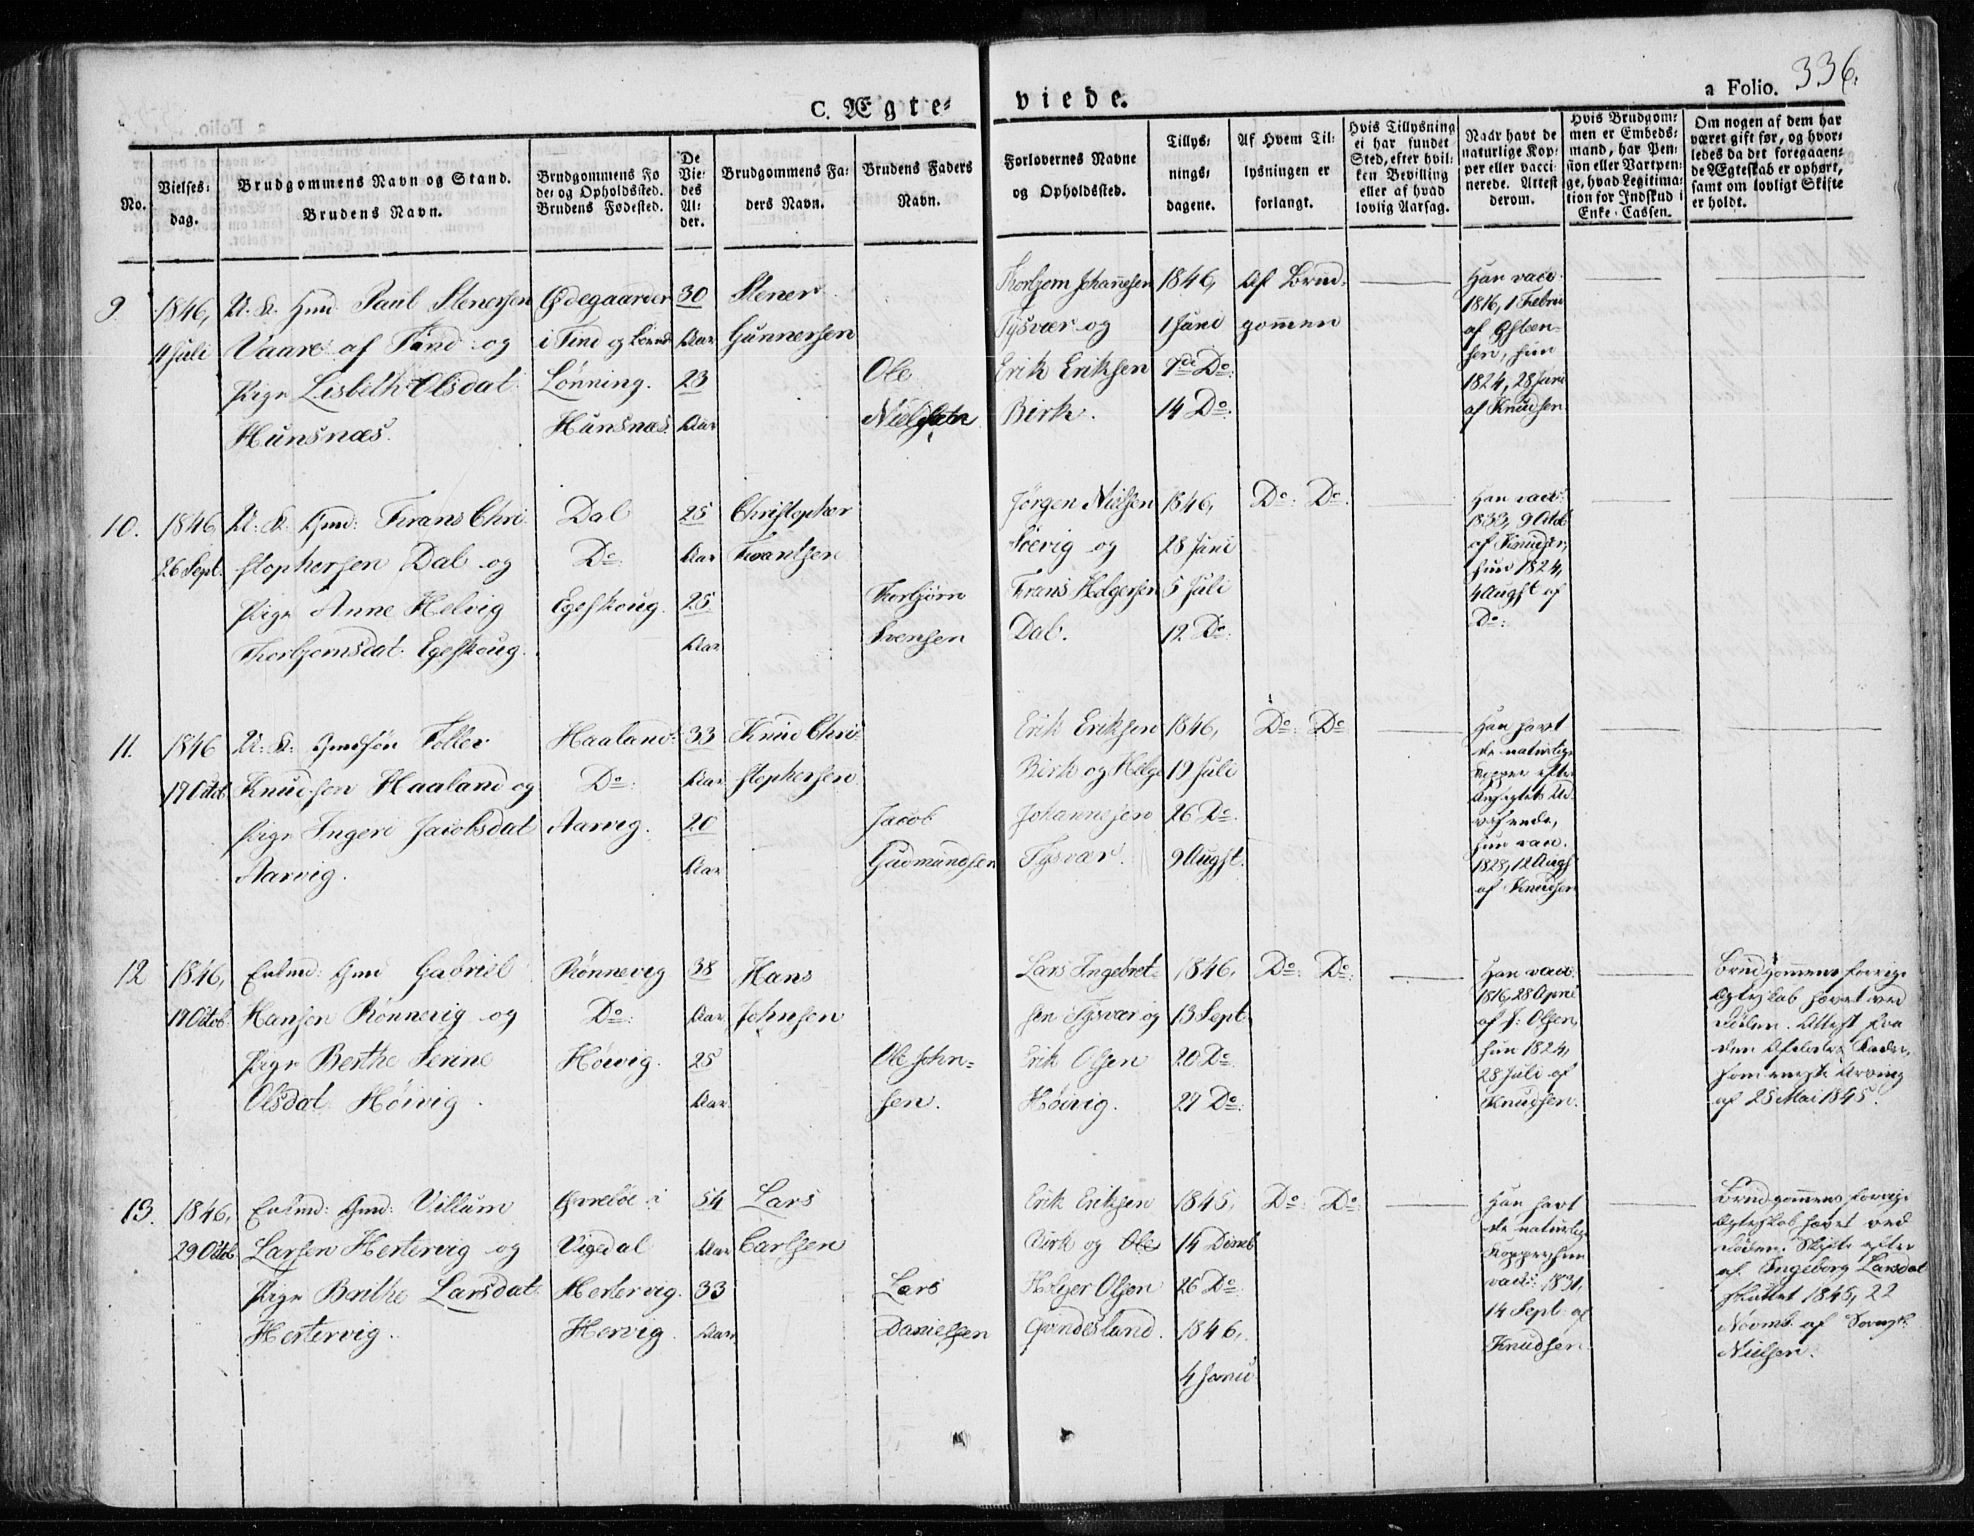 C. Ægte-
viede.
a Folio. 336.
No.
Vielses-
dag.
Brudgommens Navn og Stand.
Brudens Navn.
Brudgommens Fø
de- og Opholdssted.
Brudens Fødested.
De
Vie-
des
Al-
der.
Brudgommens Fa-
ders Navn.
Brudens Faders
Navn.
Forlovernes Navne
og Opholdssted.
Tillys-
nings-
dagene.
Af Hvem Til-
lysningen er
forlangt.
Hvis Tillysning
ei har fundet
Sted, efter hvil-
ken Bevilling
eller af hvad
lovlig Aarsag.
Naar havt de
naturlige Kop-
per eller vacci-
nerede. Attest
derom.
Hvis Brudgom-
men er Embeds-
mand, har Pen-
sion eller Vartpen-
ge, hvad Legitima-
tion for Indskud i
Enke-Cassen.
Om nogen af dem har
været gift før, og hvor-
ledes da det foregaaen-
de Ægteskab er ophørt,
samt om lovligt Skifte
er holdt.
9.
1846,
4 Juli
U. K. Gmd. Paul Stenersen
Vaare af Tind og
Pige Lisbeth Olsdat.
Hunsnæs.
Ødegaarden
i Tind og
Lønning.
Hunsnæs.
30
Aar
23
Aar
Stener
Gunnersen
Ole
Nielsen
Thorbjørn Johannesen
Tysvær og
Erik Eriksen
Birk.
1846,
1 Juni
7de Do
14 Do.
Af Brud-
gommen
Han vacc.
1816, 1 Febru
af Østeen-
sen, hun
1824, 28 Juni
af Knudsen
10.
1846
26 Sept.
U: K: Gmd: Frans Chri-
stophersen Dal og
Pige Anne Helvig
Thorbjornsdat. Egeskoug.
Dal
Do
Egeskoug.
25
Aar
25
Aar
Christopher
Frantsen
Thorbjørn
Svensen
Jørgen Nielsen
Soevig og
Frans Helgesen
Dal.
1846,
28 Juni
5 Juli
12 Do.
Do: Do.
Han vacc.
1833, 9 Octob
af Knudsen,
hun 1824,
4 Augst af
Do:
11.
1846
17 Octob
U: K: Gmdsøn Toller
Knudsen Haaland og
Pige Ingeri Jacobsdat
Aarvig.
Haaland.
Do:
Aarvig.
33
Aar
20
Aar
Knud Chri-
stophersen
Jacob
Gudmundsen
Erik Eriksen
Birk og Helge
Johannesen
Tysvær.
1846,
19 Juli
26 Do.
9 Augst.
Do: Do
Han havt
de naturlige
Kopper efter
Ansigtets Ud-
visende,
hun vacc.
1828, 12 Augst
af Knudsen
12
1846,
17 Octob
Enkmd: Gmd Gabriel
Hansen Rønnevig og
Pige Berthe Serine
Olsdat. Høivig.
Rønnevig
Do:
Høivig.
38
Aar
25
Aar
Hans
Johnsen
Ole John-
sen.
Lars Ingebret-
sen Tysvær og
Erik Olsen
Høivig.
1846,
13 Sept.
20 Do
27 Do:
Do: Do:
Han vacc.
1816, 28 April
af J: Olsen,
hun 1824,
28 Juli af
Knudsen.
Brudgommens forrige
Ægteskab hævet ved
Døden. Attest fra
den Afdødes Fader,
som eneste Arving
af 25 Mai 1845.
13.
1846,
29 Octob
Enkmd: Gmd: Villum
Larsen Hertervig og
Pige Berthe Larsdat.
Hertervig.
i
Vigedal
Hertervig.
Hervig.
54
Aar
33
Aar
Lars
Carlsen
Lars
Danielsen
Erik Eriksen
Birk og Ole
Holger Olsen
Gundesland.
1845,
14 Decmb
26 Do
1846,
4 Janu
Do: Do:
Han havt
de naturlig
Kopper, hun
vacc. 1831,
14 Sept. af
Knudsen
Brudgommens forrige
Ægteskab hævet ved
Døden. Skifte efter
af Ingeborg Larsdat
sluttet 1845, 22
Novmb. af Sorenskr.
Nielsen.